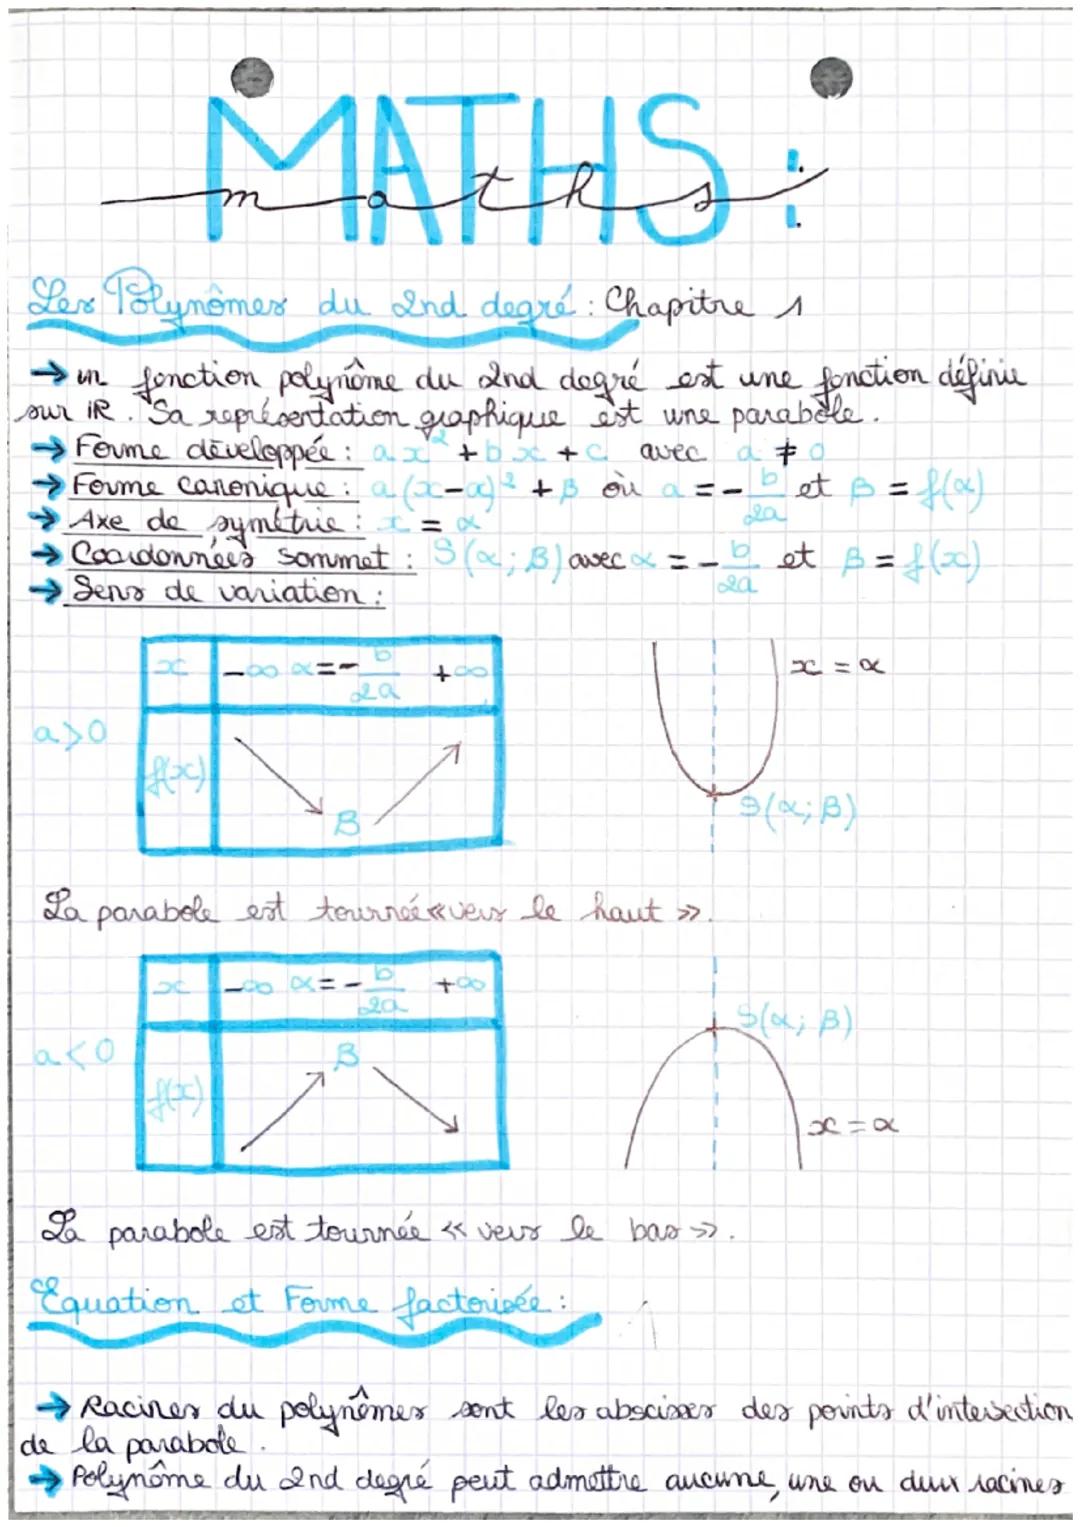 MATHS :
maths
Les Polynômes du 2nd degré : Chapitre 1
→ un fonction polynôme du 2nd degré est une fonction définie
sur IR. Sa représentation graphique est une parabole.
→ Forme développée : ax² + bx + c avec a ≠ 0
→ Forme canonique : a(x-α)² + β où α = -b/2a et β = f(α)
→ Axe de symétrie : x = α
→ Coordonnées sommet : S(α; β) avec α = -b/2a et β = f(x)
→ Sens de variation :
x -∞ α = -b/2a +∞
x = α
a>0
f(x)
β
S(α; β)
La parabole est tournée « vers le haut ».
x -∞ α = -b/2a +∞
S(α; β)
a<0
β
f(x)
x = α
La parabole est tournée « vers le bas ».
Equation et Forme factorisée :
→ Racines du polynômes sont les abscisses des points d'intersection
de la parabole.
→ Polynôme du 2nd degré peut admettre aucune, une ou deux racines